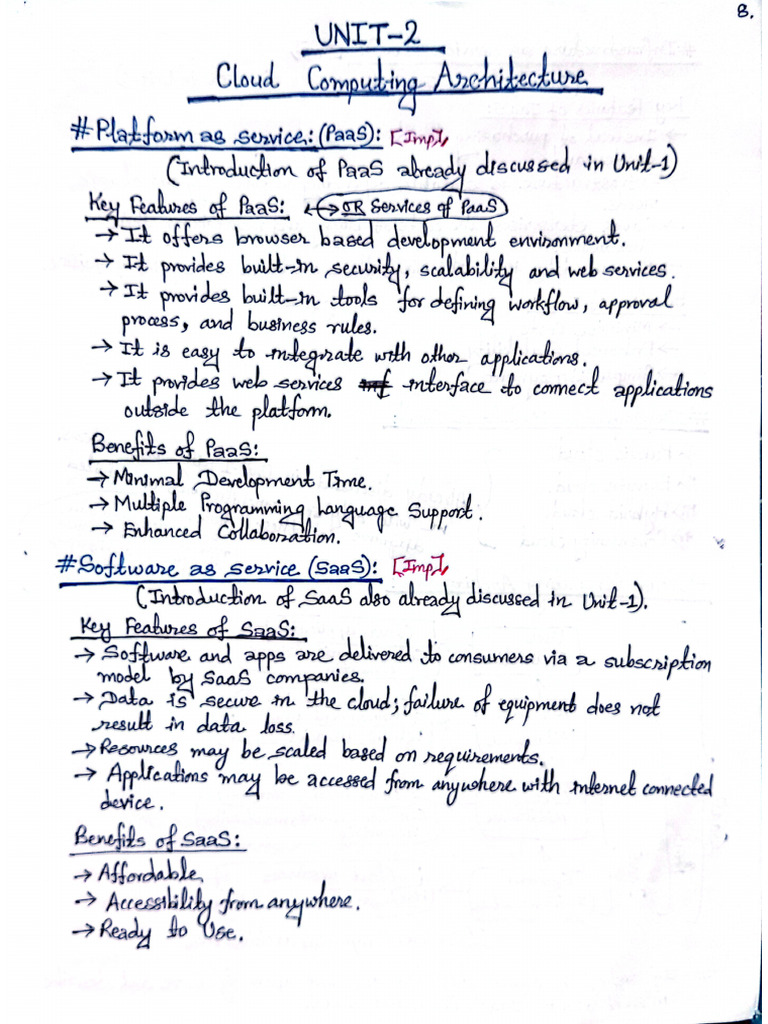 8.
UNIT-2
Cloud Computing Architecture
#Platform as service: (PaaS): [Imp]
(Introduction of PaaS already discussed in Unit-1)
Key Features of PaaS: ↔ OR Services of PaaS
→ It offers browser based development environment.
→ It provides built-in security, scalability and web services.
→ It provides built-in tools for defining workflow, approval
process, and business rules.
→ It is easy to integrate with other applications.
→ It provides web services inf interface to connect applications
outside the platform.
Benefits of PaaS:
→ Minimal Development Time.
→ Multiple Programming Language Support.
→ Enhanced Collaboration.
#Software as service (SaaS): [Imp]
(Introduction of SaaS also already discussed in Unit-1).
Key Features of SaaS:
→ Software and apps are delivered to consumers via a subscription
model by SaaS companies.
→ Data is secure in the cloud; failure of equipment does not
result in data loss.
→ Resources may be scaled based on requirements.
→ Applications may be accessed from anywhere with internet connected
device.
Benefits of SaaS:
→ Affordable.
→ Accessibility from anywhere.
→ Ready to Use.